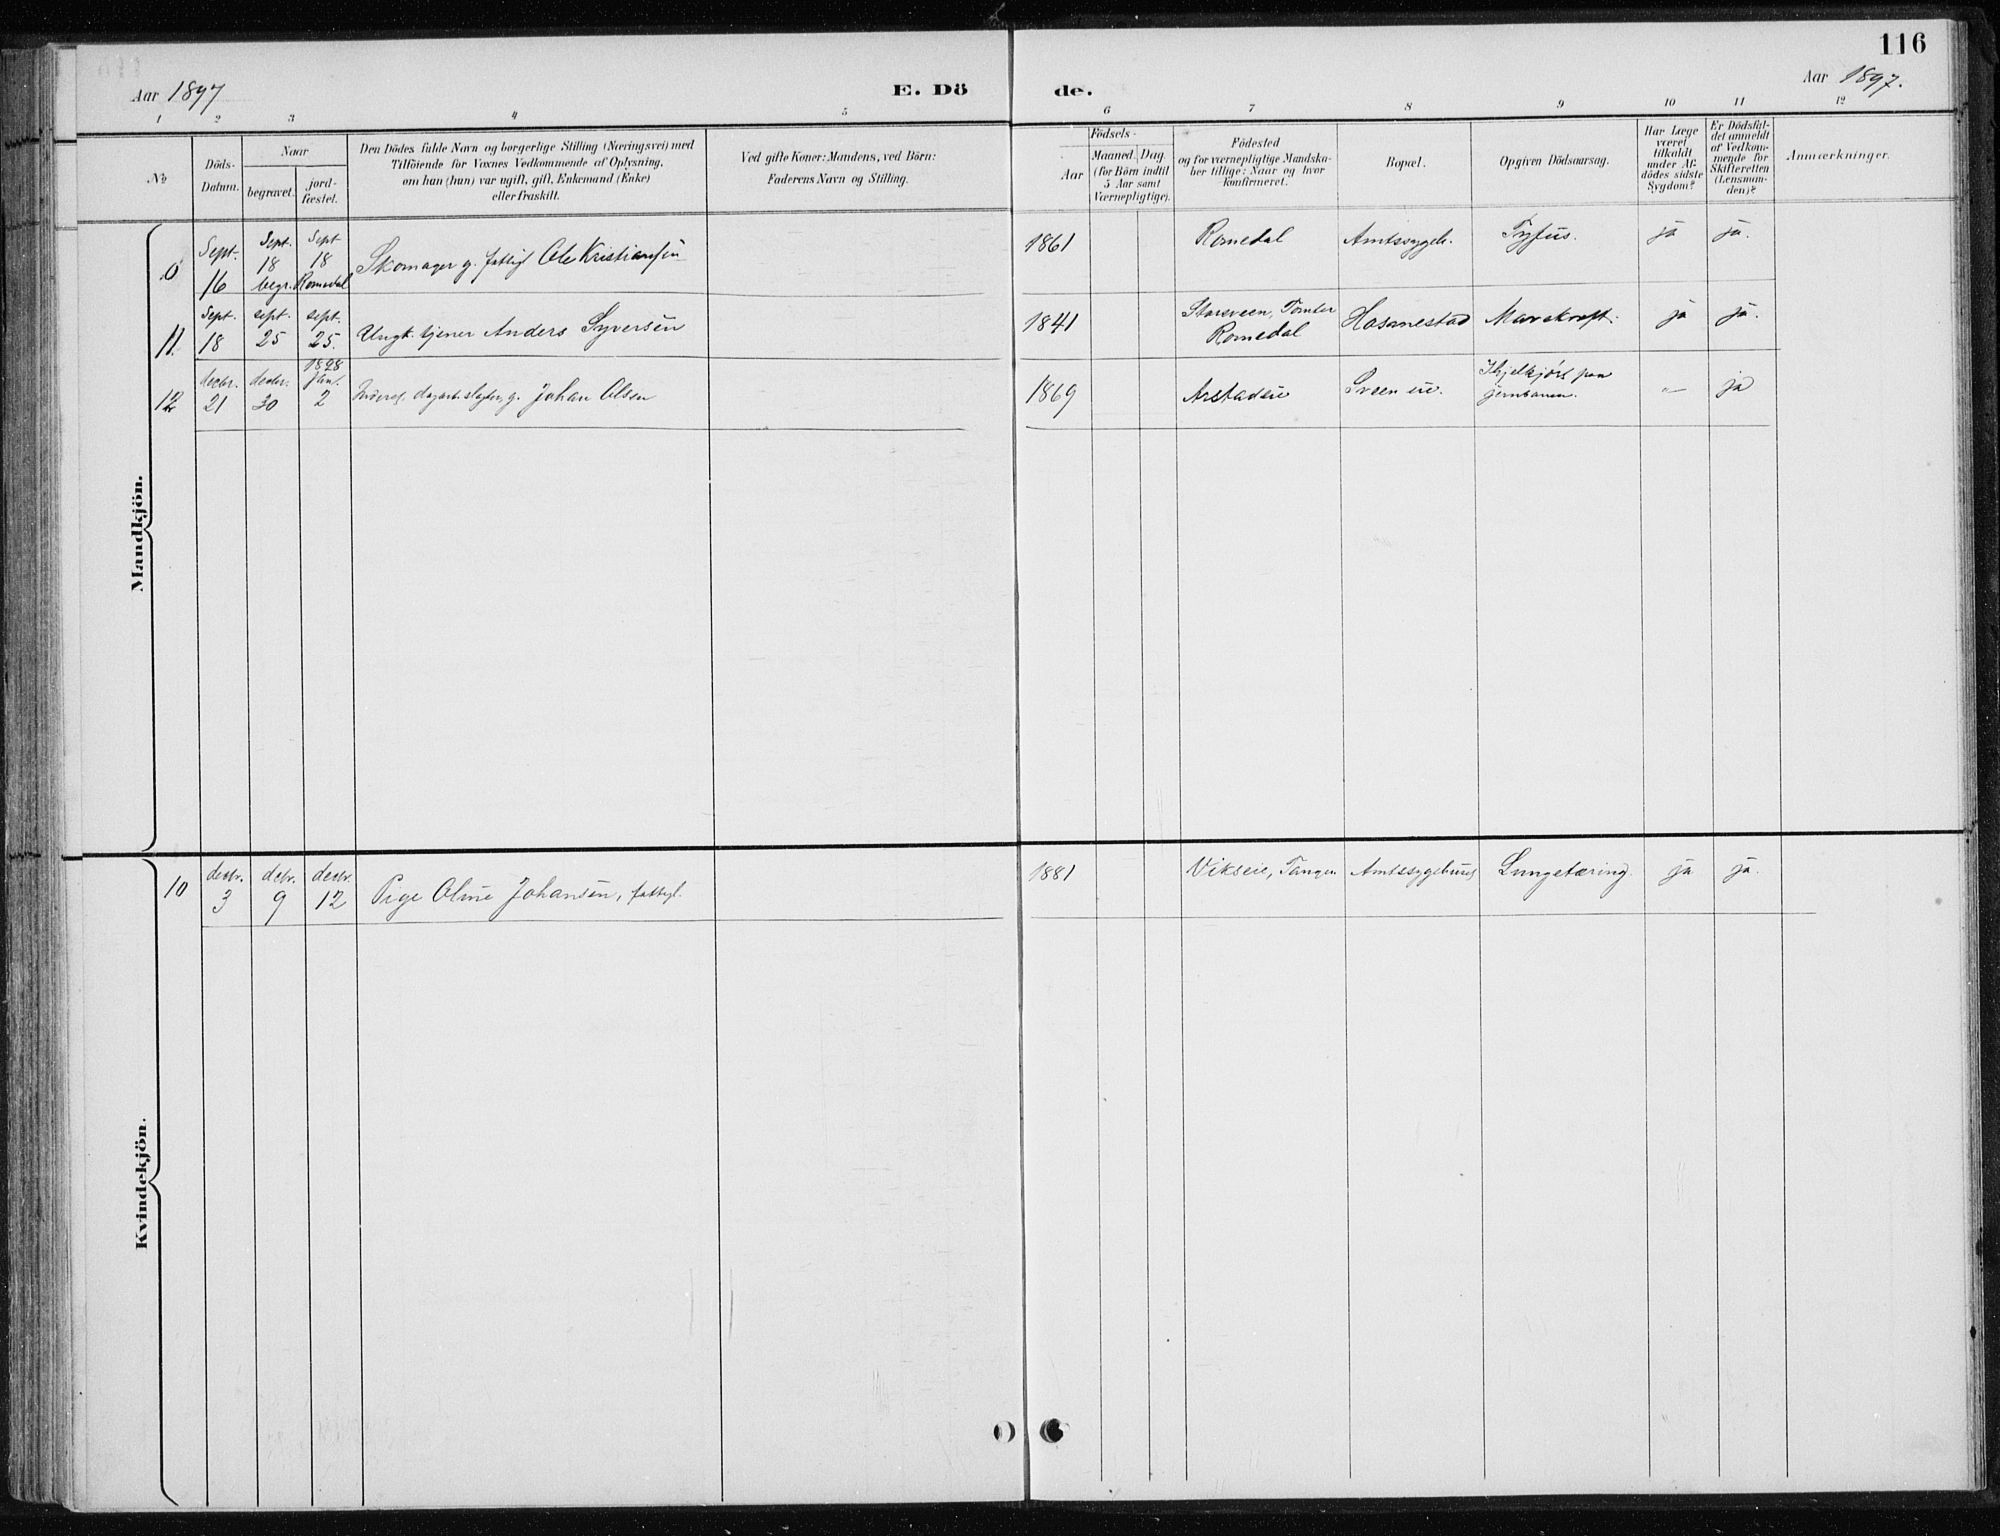 116
Aar 1897
E. Dö
de.
Aar 1897.
1 2 3 4 5 6 7 8 9 10 11 12
No
Döds-
Datum.
Naar
begravet.
jord-
fæstet.
Den Dödes fulde Navn og borgerlige Stilling (Næringsvei) med
Tilföiende for Voxnes Vedkommende af Oplysning,
om han (hun) var ugift, gift, Enkemand (Enke)
eller fraskilt.
Ved gifte Koner: Mandens, ved Börn:
Faderens Navn og Stilling.
Födsels-
Aar
Maaned. Dag.
(for Börn indtil
5 Aar samt
Værnepligtige).
Födested
og for værnepligtige Mandska-
ber tillige: Naar og hvor
konfirmeret.
Bopæl.
Opgiven Dödsaarsag.
Har Læge
været
tilkaldt
under Af-
dödes sidste
Sygdom?
Er Dödsfal-
det anmeldt
af Vedkom-
mende for
Skifteretten
(Lensman-
den)?
Anmærkninger.
Mandkjön.
Sept. 16 Sept. 18 begr. Sept 18 Romedal Skomager g. fattigl Ole Kristiansen 1861 Romedal Amtssygeh. Tyfus. ja ja.
11. Sept. 18 sept. 25 sept. 25. Ungk. tjener Anders Syversen 1841 Storsveen, Tomter Romedal Hosmestad Marekraft. ja ja.
12 decbr. 21 decbr. 30 1898 Jan. 2 Johan Olsen 1869 Arstadeie Sveen eie. Ihjelkjørt paa jernbanen. -"- ja
Kvindekjön.
10 decbr. 3 decbr. 9 decbr. 12 Pige Oline Johansen, fattigl. 1881 Vikseie, Tangen Amtssygehuset Lungetæring. ja ja.